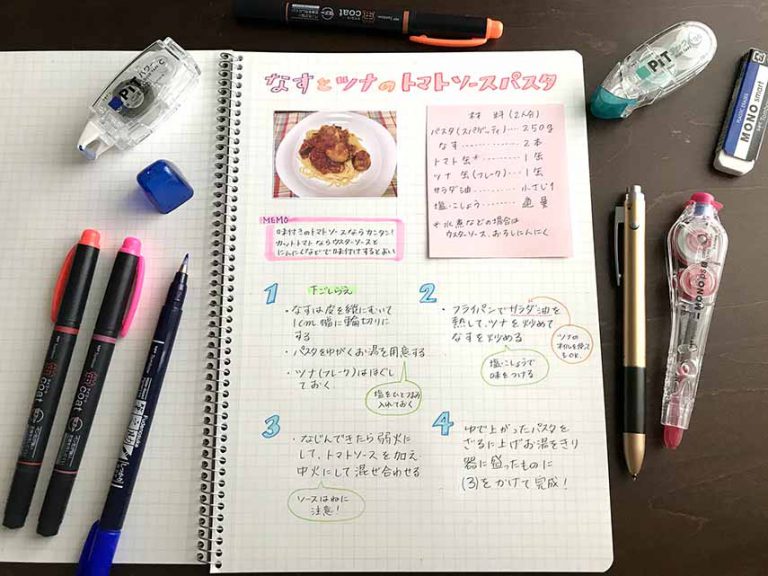 なすとツナのトマトソースパスタ
材料(2人分)
パスタ(スパゲッティ)…250g
なす…………2本
トマト缶*……1缶
ツナ缶(フレーク)…1缶
サラダ油…………小さじ1
塩・こしょう……適量
*水煮などの場合は
ウスターソース、おろしにんにく
MEMO
味付きのトマトソースならカンタン!
カットトマトならウスターソースと
にんにくなどで味付けするとよい
1 下ごしらえ
・なすは皮を縦にむいて
1cm幅に輪切りに
する
・パスタをゆがくお湯を用意する
・ツナ(フレーク)はほぐし
ておく
塩をひとつまみ
入れておく
2
・フライパンでサラダ油を
熱して、ツナを炒めて
なすを炒める
ツナの
オイルを使って
もOK.
塩・こしょうで
味をつける
3
・なじんできたら弱火に
して、トマトソースを加え
中火にして混ぜ合わせる
ソースはねに
注意!
4
ゆで上がったパスタを
ざるに上げお湯をきり
器に盛ったものに
(3)をかけて完成!
PiT
PiT
MONO smart
coat
coat
coat
MONO